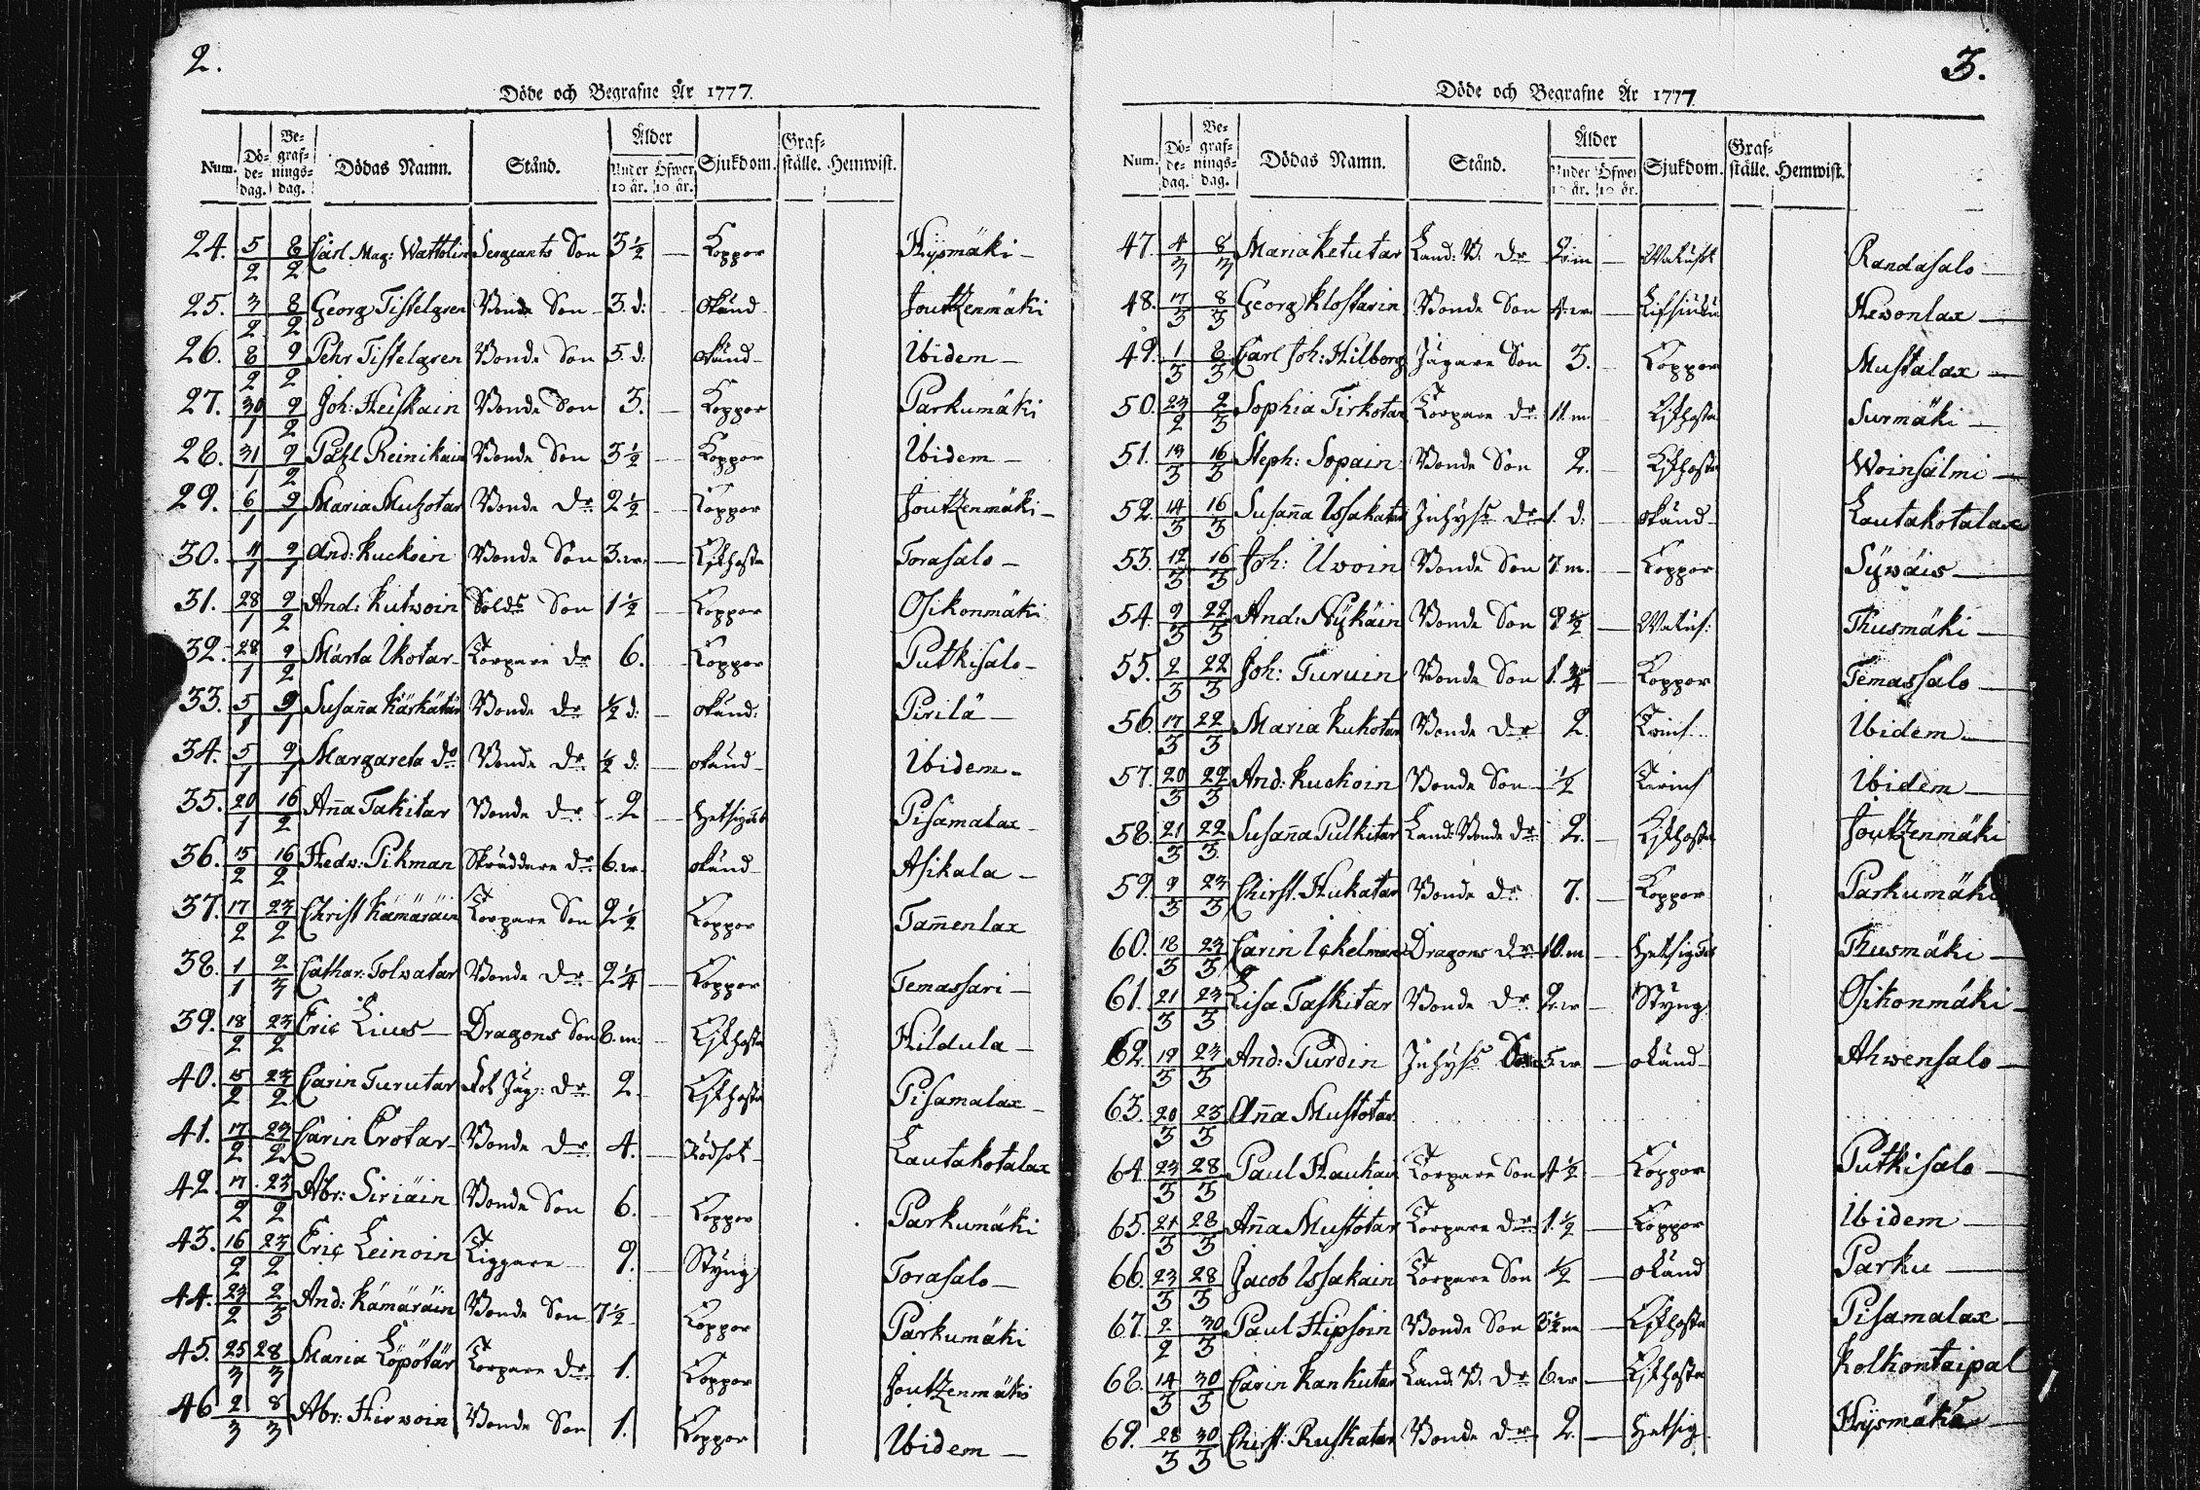 2.
Döde och Begrafne År 1777.
Num. Dö-de-dag. Be-graf-nings-dag. Dödas Namn. Stånd. Ålder Under 10 år. Öfwer 10 år. Sjukdom. Graf-ställe. Hemwist.
24. 5/2 8/2 Carl Mag: Wattolin Sergeants Son 3 1/2 — Koppor Hysmäki —
25. 3/2 8/2 Georg Tistelgren Bonde Son 3. d: okänd Joutzenmäki
26. 8/2 9/2 Pehr Tistelgren Bonde Son 5. d: okänd Ibidem —
27. 30/1 9/2 Joh: Heiskain Bonde Son 3. — Koppor Parkumäki
28. 31/1 9/2 Påhl Reinikain Bonde Son 3 1/2 — Koppor Ibidem —
29. 6/1 9/1 Maria Muhotar Bonde dr 2 1/2 — Koppor Joutzenmäki —
30. 11/1 9/1 And: Kuckoin Bonde Son 3. w. — Kikhosta Torasalo —
31. 28/1 9/2 And: Kutwoin Solds Son 1 1/2 — Koppor Osikonmäki
32. 28/1 9/2 Märta Ikotar Torpare dr 6. — Koppor Putkisalo —
33. 5/1 9/1 Susaña Kärkätär Bonde dr 1/2 d: — okänd: Pirilä —
34. 5/1 9/1 Margareta do Bonde dr 1/2 d: — okänd Ibidem —
35. 20/1 16/2 Aña Takitar Bonde dr 2 — Hetsig Pisamalax —
36. 15/2 16/2 Hedv: Pikman Skräddare dr 6. w. okänd Asikala —
37. 17/2 23/2 Christ Kämäräin Torpare Son 2 1/2 Koppor Tam̃enlax
38. 1/1 2/3 Cathar: Tolvatar Bonde dr 2 1/4 — Koppor Temassari —
39. 18/2 23/2 Eric Lius — Dragons Son 8. m. Kikhosta Hildula —
40. 15/2 23/2 Carin Turutar Jäg: dr 2 Kikhosta Pisamalax —
41. 17/2 23/2 Carin Erotar Bonde dr 4. — Rödsot Lautakotalax
42. 17/2 23/2 Abr: Siriäin Bonde Son 6. — Koppor Parkumäki
43. 16/2 23/2 Eric Leinoin Tiggare 9. — Styng Torasalo —
44. 23/2 2/3 And: Kämäräin Bonde Son 7 1/2 Koppor Parkumäki
45. 25/3 28/3 Maria Löpötär Torpare dr 1. Koppor Joutzenmäki
46 2/3 8/3 Abr: Hirwoin Bonde Son 1. Koppor Ibidem —
3.
Döde och Begrafne År 1777
Num. Dö-de-dag. Be-graf-nings-dag. Dödas Namn. Stånd. Ålder Under 10 år. Öfwer 10 år. Sjukdom. Graf-ställe. Hemwist.
47. 4/3 8/3 Maria Ketutar Land: B. dr — Randasalo —
48. 17/3 8/3 Georg Klostarin Bonde Son 4. w. — Hevonlax —
49. 1/3 8/3 Carl Joh: Hilborg Jägare Son 3. — Koppor Mustalax —
50. 23/2 2/3 Sophia Tirkotar Torpare dr 11. m. Kikhosta Surmäki —
51. 13/3 16/3 Steph: Sopain Bonde Son 2. — Kikhosta Woinsalmi —
52. 14/3 16/3 Susaña Issakatar Inhyss dr 1. d. — okänd Lautakotalax
53. 12/3 16/3 Joh: Uvoin Bonde Son 7. m. — Koppor Syväis —
54. 9/3 22/3 And: Nykäin Bonde Son — Thusmäki —
55. 2/3 22/3 Joh: Turuin Bonde Son 1. 3/4 — Koppor Temassalo —
56. 17/3 22/3 Maria Kukotar Bonde dr 2 — Ibidem —
57. 20/3 22/3 And: Kuckoin Bonde Son 1/2 — Ibidem —
58. 21/3 22/3 Susaña Pulkitar Land: Bonde dr 2. — Kikhosta Joutzenmäki
59. 9/3 23/3 Christ. Hukatar Bonde dr 7. — Koppor Parkumäki
60. 18/3 23/3 Carin Ickelman Dragons dr 10. m — Hetsig Thusmäki —
61. 21/3 23/3 Lisa Taskitar Bonde dr 2. w — Styng Osikonmäki —
62. 19/3 23/3 And: Purdin Inhyss Son 5. w — okänd Ahwensalo —
63. 20/3 23/3 Aña Mustotar
64. 23/3 28/3 Paul Haukain Torpare Son 4 1/2 — Koppor Putkisalo —
65. 21/3 28/3 Aña Mustotar Torpare dr 1. 1/2 — Koppor Ibidem —
66. 23/3 28/3 Jacob Issakain Torpare Son 1/2 — okänd Parku —
67. 2/2 30/3 Paul Hipsoin Bonde Son 3 1/2 m — Kikhosta Pisamalax —
68. 14/3 30/3 Carin Kankutar Land: B. dr 6. w — Kikhosta Kolkontaipal
69. 28/3 30/3 Christ: Ruskatar Bonde dr 2. — Hetsig Hysmäki —